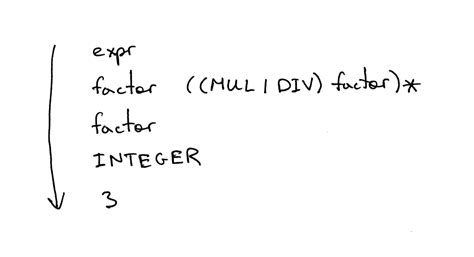 expr
factor ((MUL | DIV) factor)*
factor
INTEGER
3